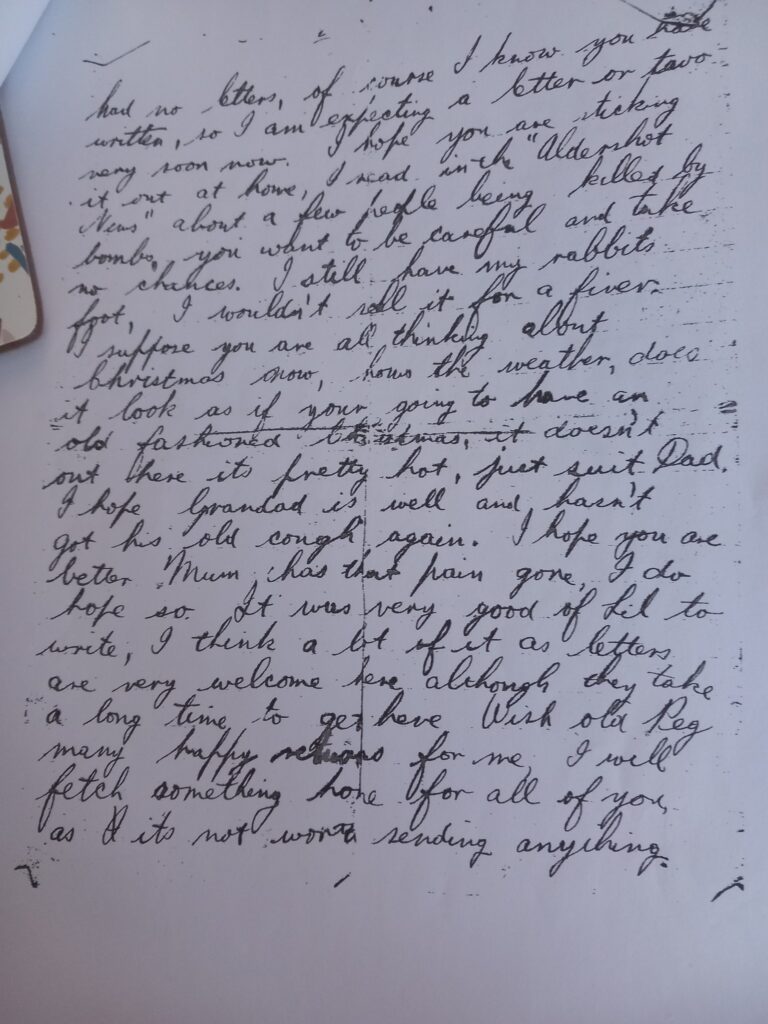 had no letters, of course I know you have
written, so I am expecting a letter or twoo
very soon now. I hope you are sticking
it out at home, I read in the "Aldershot
News" about a few people being killed by
bombs, you want to be careful and take
no chances. I still have my rabbits
foot, I wouldn't sell it for a fiver.
I suppose you are all thinking about
Christmas now, hows the weather, does
it look as if your going to have an
old fashioned Christmas, it doesn't
out here its pretty hot, just suit Dad.
I hope Grandad is well and hasn't
got his old cough again. I hope you are
better Mum, has that pain gone, I do
hope so. It was very good of Lil to
write, I think a lot of it as letters
are very welcome here although they take
a long time to get here Wish old Peg
many happy returns for me, I will
fetch something home for all of you,
as I its not worth sending anything.